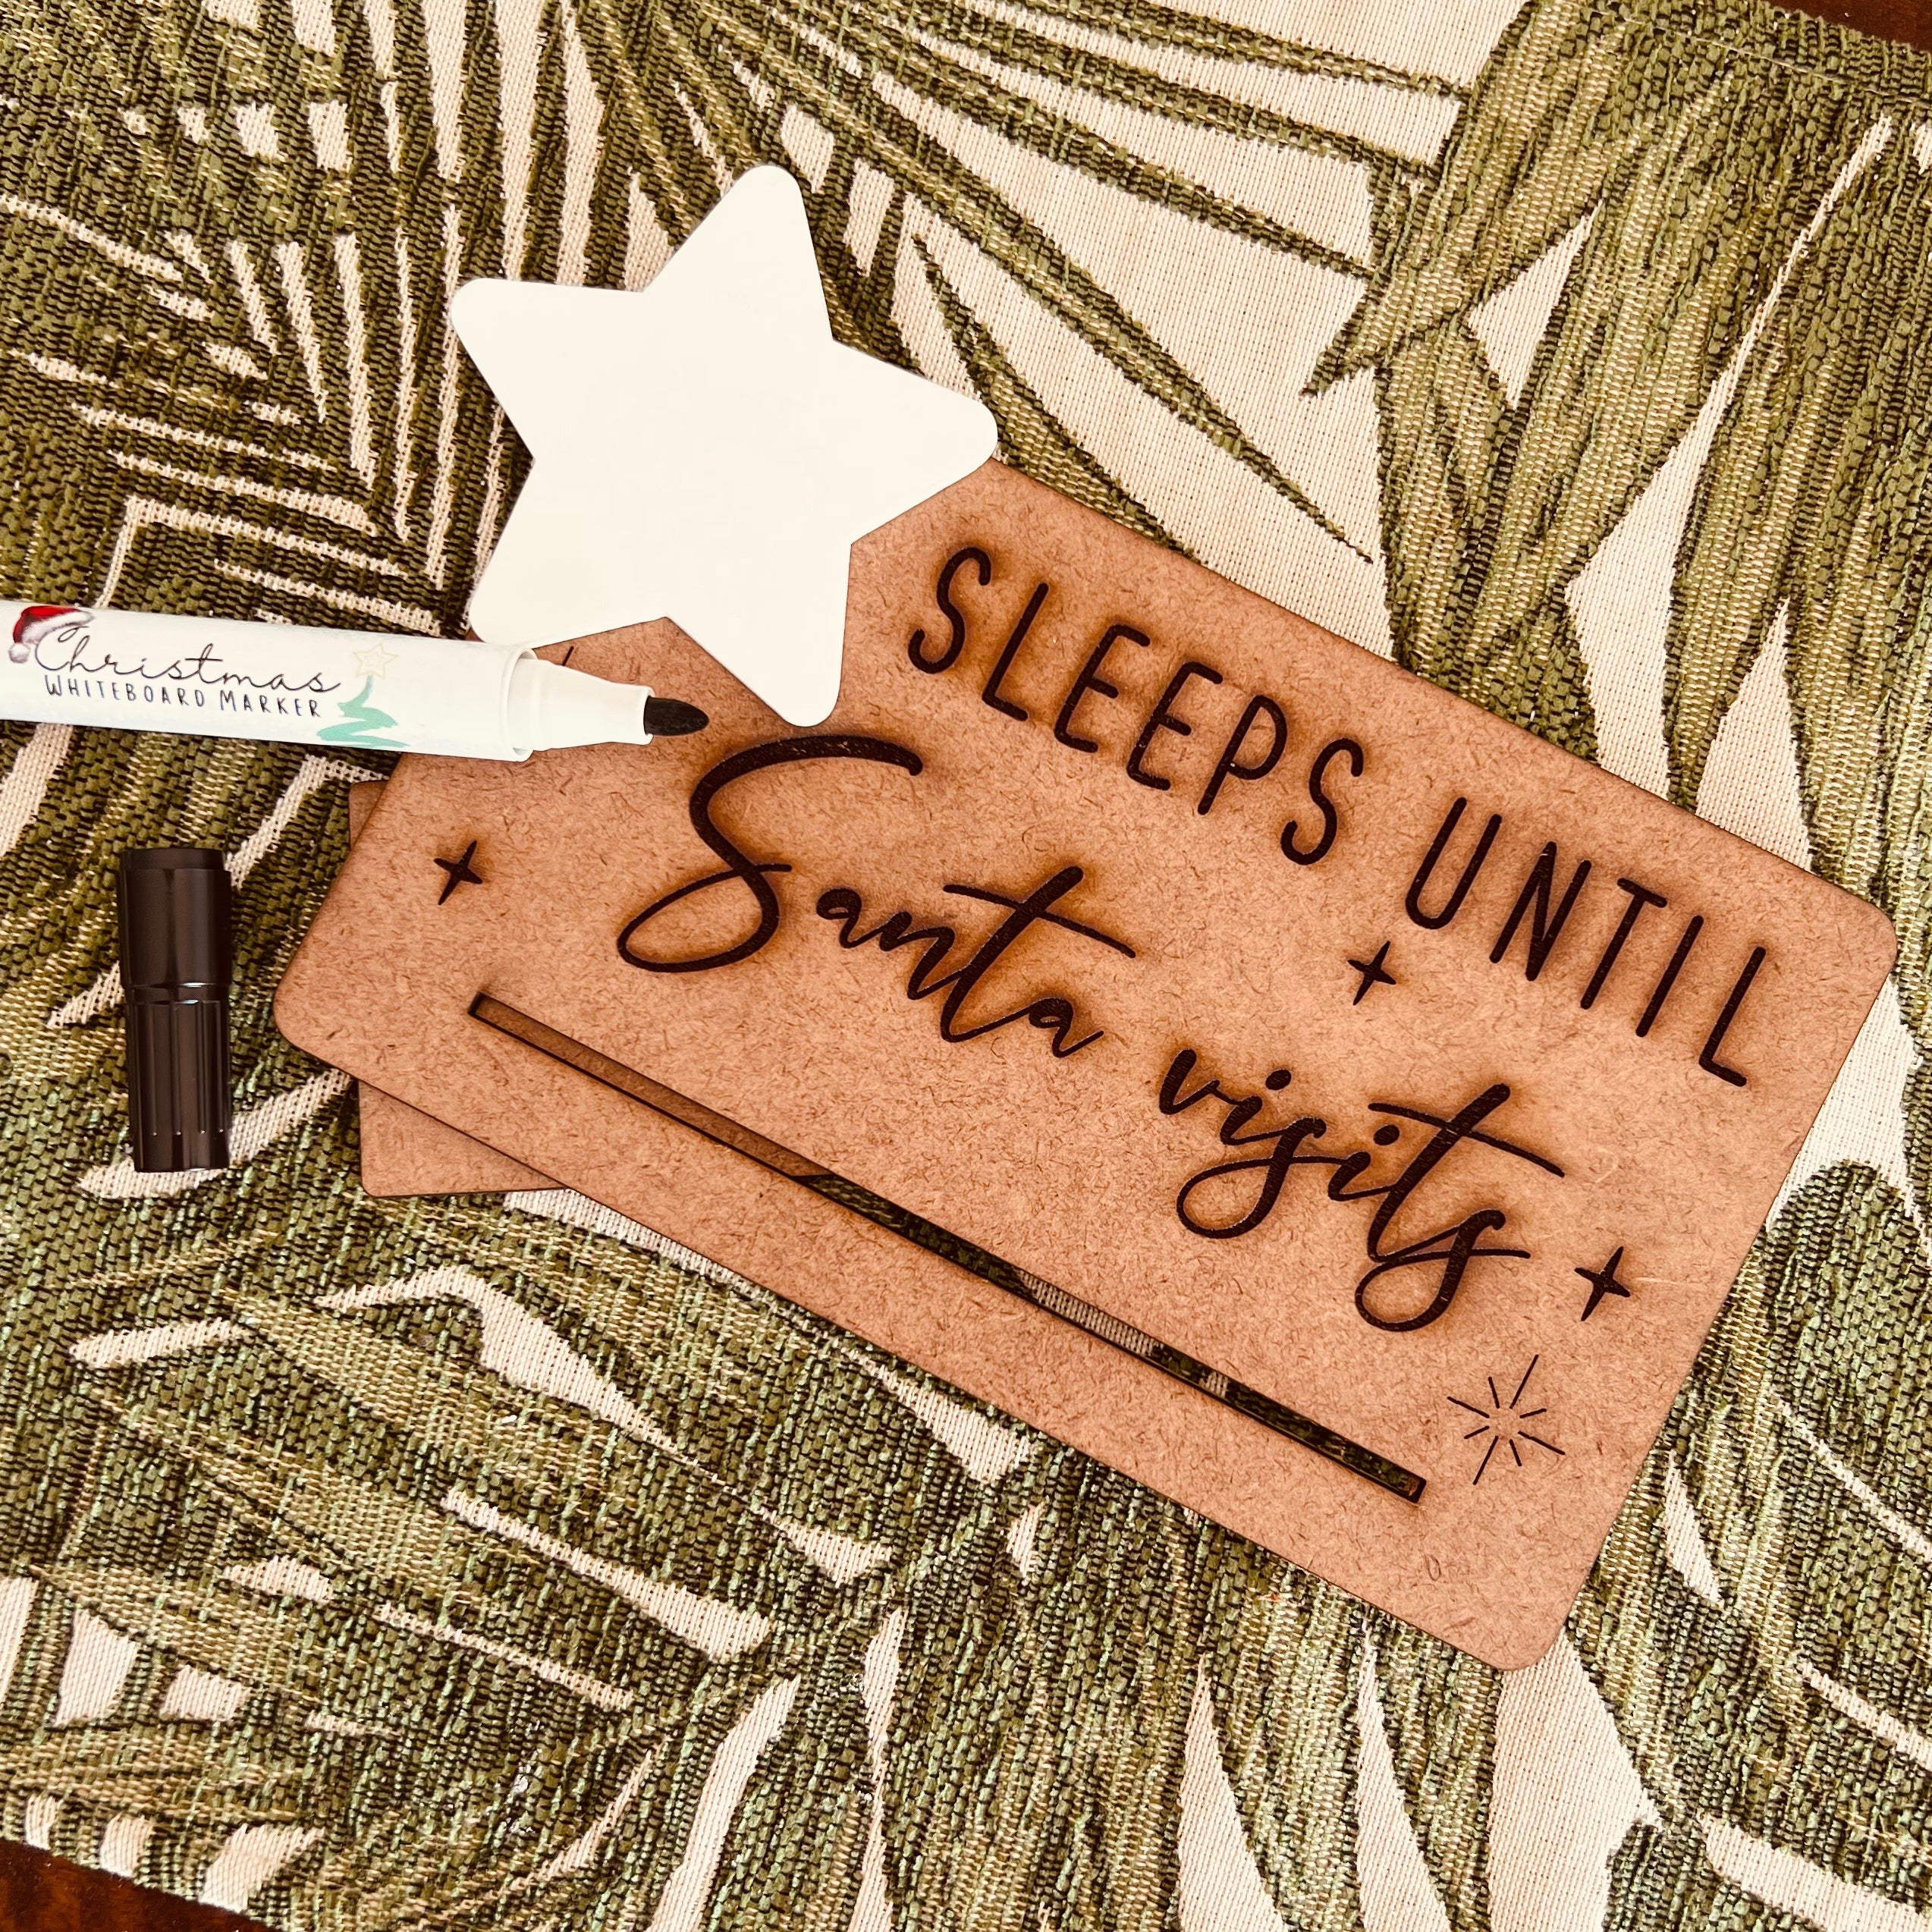 Christmas
WHITEBOARD MARKER
SLEEPS UNTIL
Santa visits